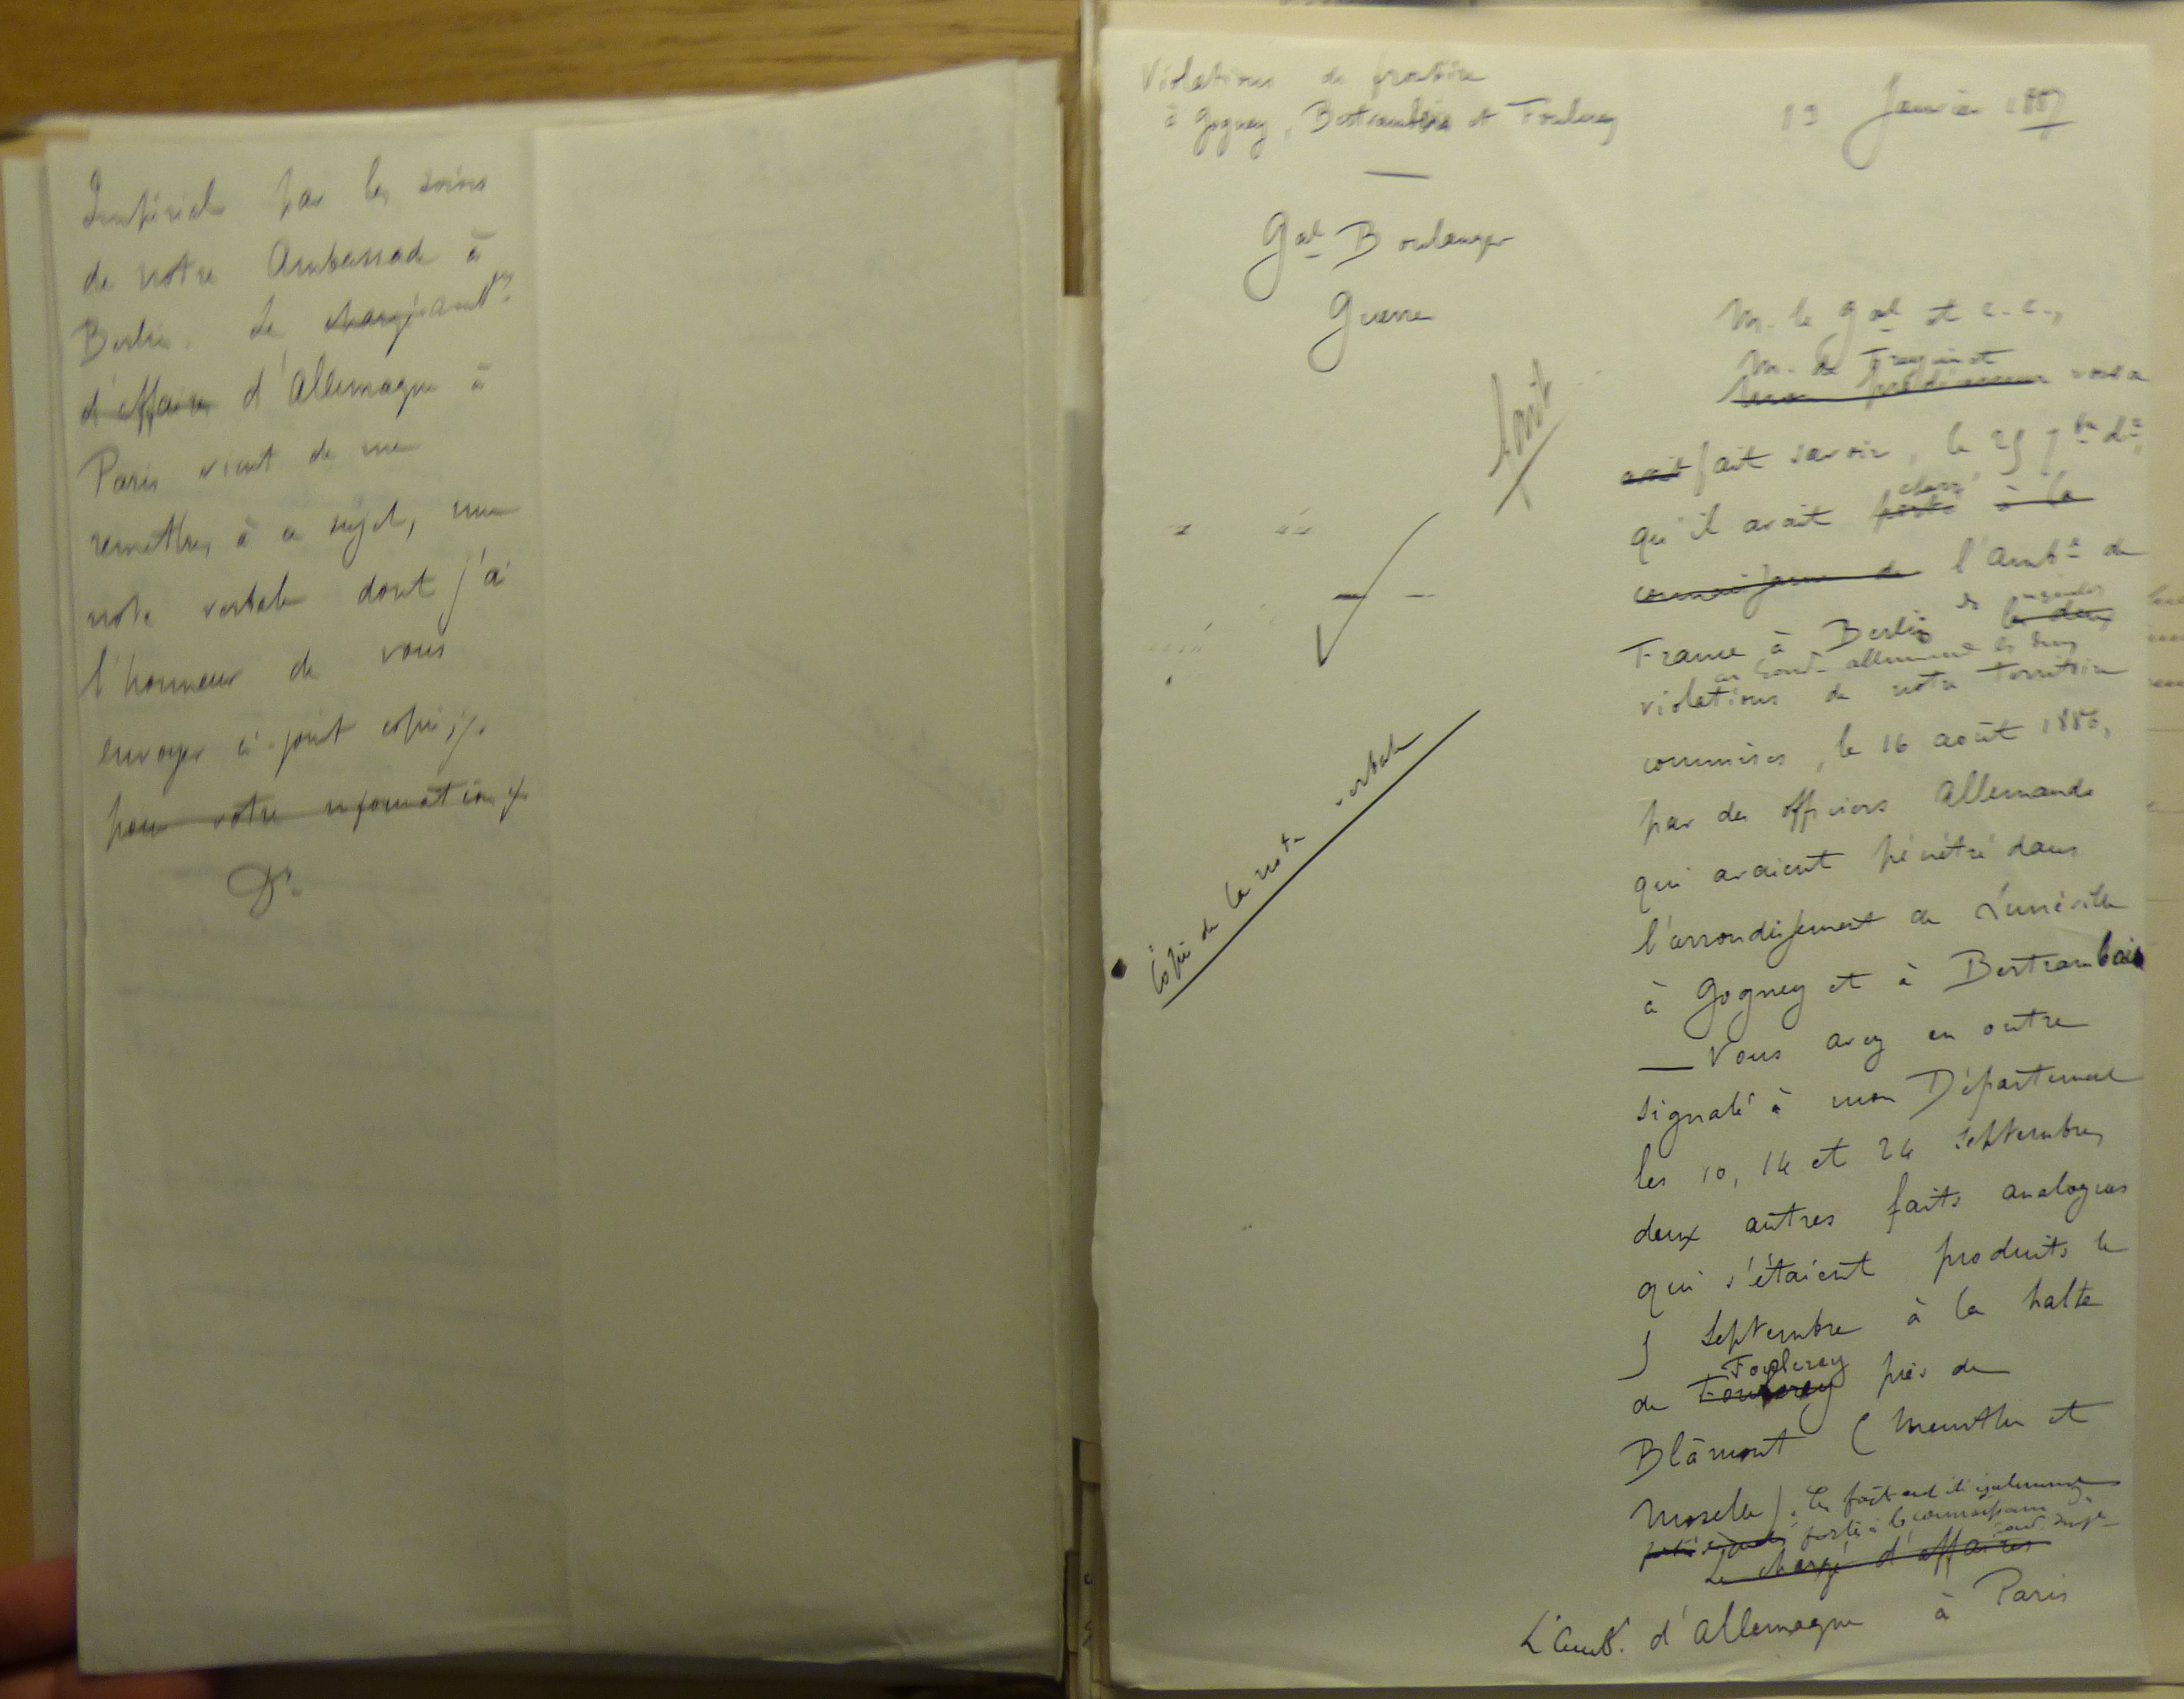 Impérial par les soins
de notre Ambassade à
Berlin. Le chargé amb.
d'affaires d'Allemagne à
Paris vient de me
remettre, à ce sujet, une
note verbale dont j'ai
l'honneur de vous
envoyer ci-joint copie ./.
pour votre information ./.
D.
Violations de frontière
à Gogney, Bertrambois et Foulcrey
13 Janvier 1887
Gal Boulanger
Guerre
M. le Gal et c. c.,
M. de Freycinet
mon prédécesseur vous a
avait fait savoir, le 25 7bre dr
qu'il avait chargé
porté à la
connaissance de l'Ambr de
France à Berlin de signaler
les deux
au Gouvt allemand les deux
violations de notre territoire
commises, le 16 août 1886,
par des officiers allemands
qui avaient pénétré dans
l'arrondissement de Lunéville
à Gogney et à Bertrambois
— Vous avez en outre
signalé à mon Département
les 10, 14 et 24 Septembre,
deux autres faits analogues
qui s'étaient produits le
5 Septembre à la halte
Foulcrey
de près de
Blâmont (Meurthe et
Moselle). Ces faits ont été également
portés à la connaissance
Le chargé d'affaires
L'amb. d'Allemagne à Paris
Copie de la note verbale